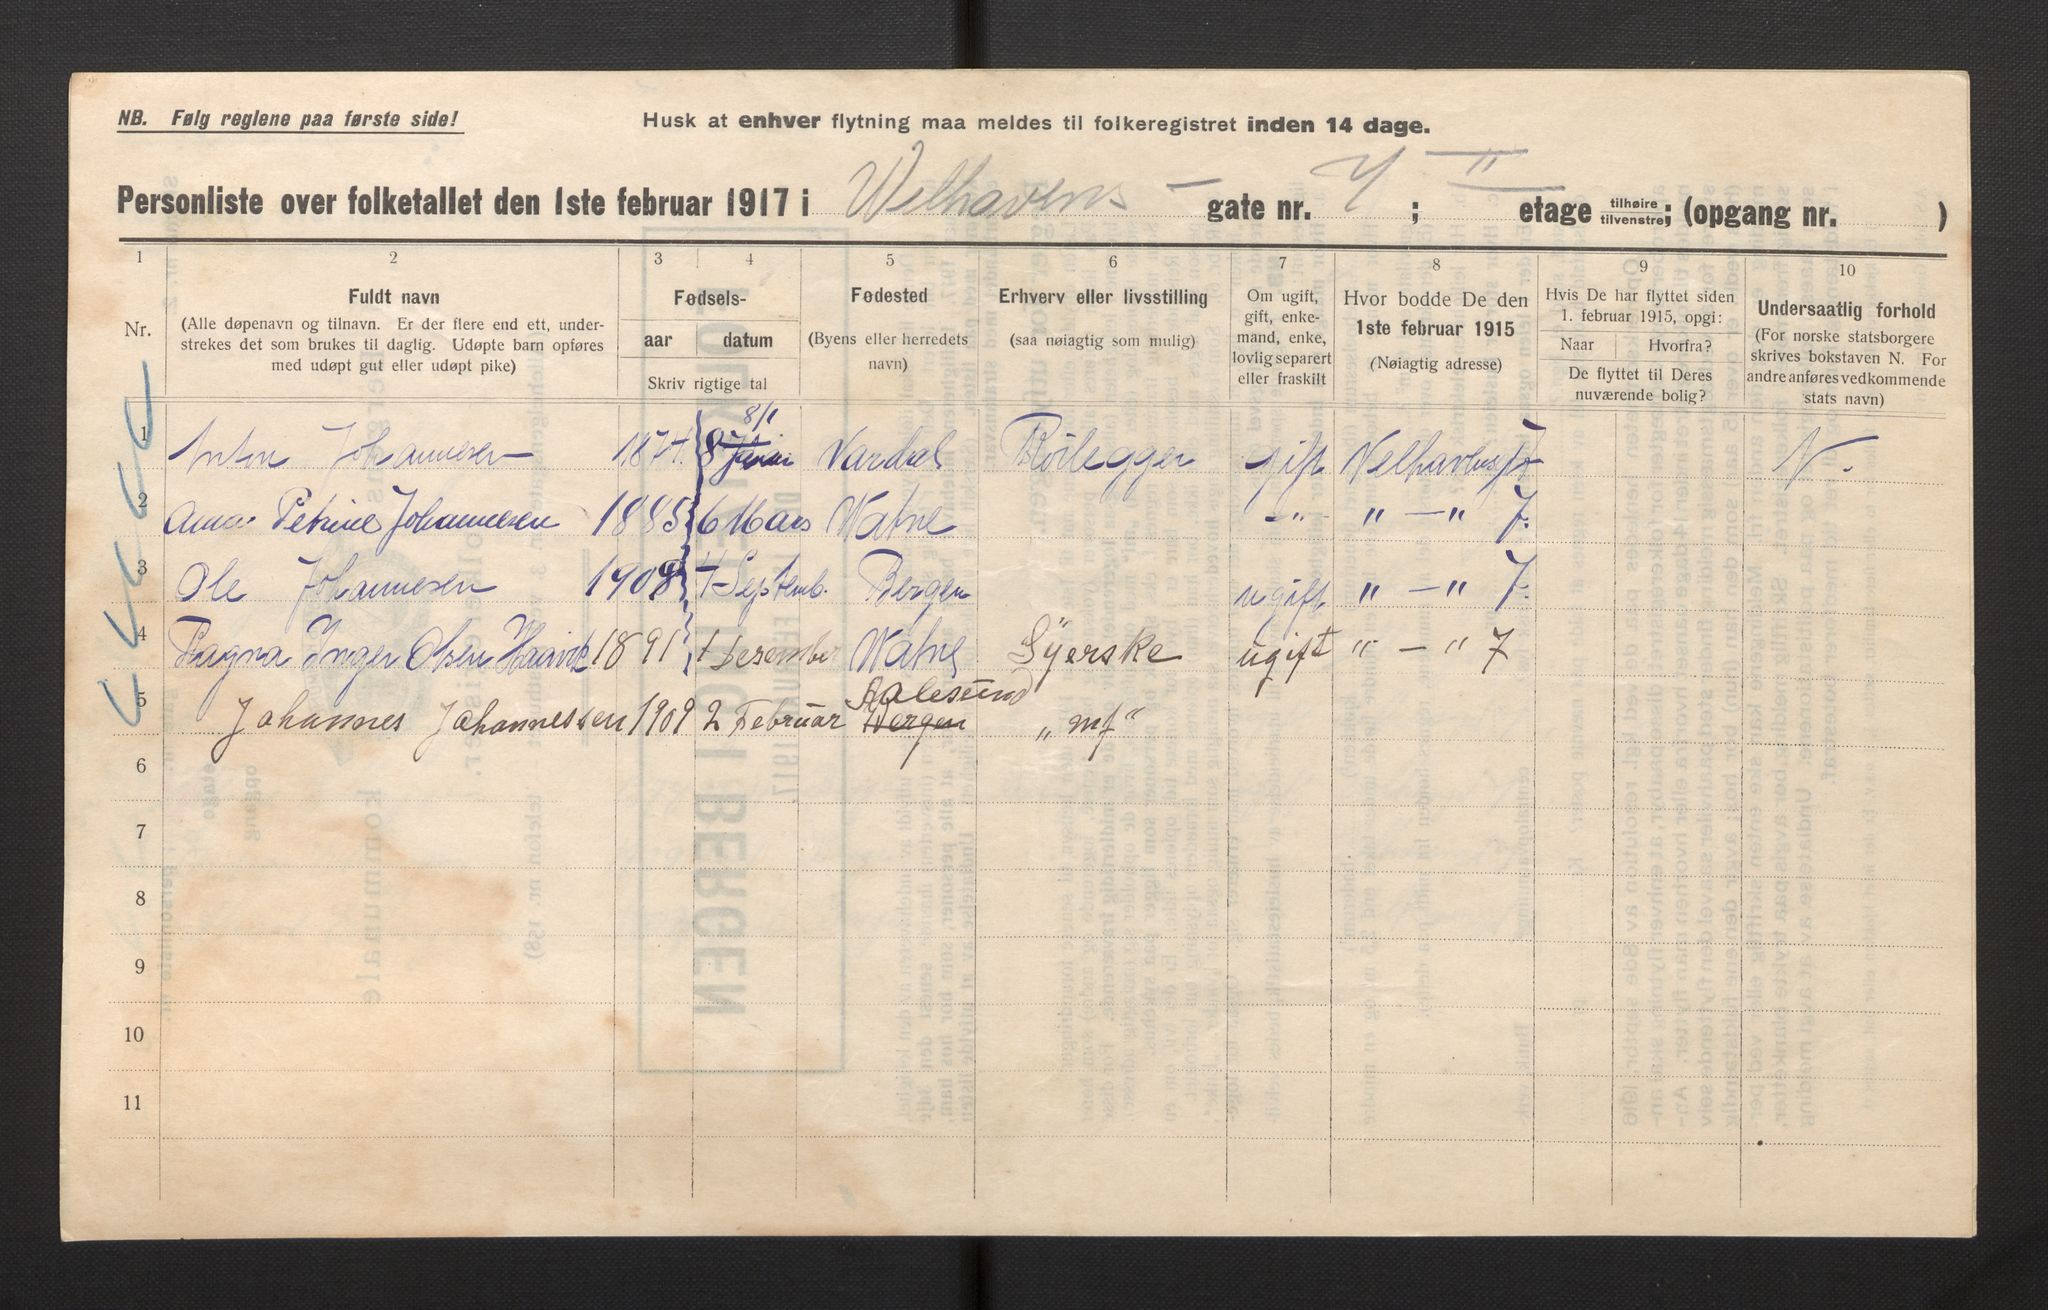 NB. Følg reglene paa første side!
Husk at enhver flytning maa meldes til folkeregistret inden 14 dage.
Personliste over folketallet den 1ste februar 1917 i Welhavens gate nr. 7 ; II etage tilhøire tilvenstre; (opgang nr. )
1 2 3 4 5 6 7 8 9 10
Nr.
Fuldt navn
(Alle døpenavn og tilnavn. Er der flere end ett, under-
strekes det som brukes til daglig. Udøpte barn opføres
med udøpt gut eller udøpt pike)
Fødsels-
aar datum
Skriv rigtige tal
Fødested
(Byens eller herredets
navn)
Erhverv eller livsstilling
(saa nøiagtig som mulig)
Om ugift,
gift, enke-
mand, enke,
lovlig separert
eller fraskilt
Hvor bodde De den
1ste februar 1915
(Nøiagtig adresse)
Hvis De har flyttet siden
1. februar 1915, opgi:
Naar Hvorfra?
De flyttet til Deres
nuværende bolig?
Undersaatlig forhold
(For norske statsborgere
skrives bokstaven N. For
andre anføres vedkommende
stats navn)
8/1
1 Anton Johannesen 1874 8 Januar Vardal Rørlegger gift N.
2 Anna Petrine Johannesen 1885 6 Mars Vatne -"- " - " 7.
3 Ole Johannesen 1908 4 Septemb. Bergen ugift " - " 7.
4 Ragna Inger Olsen Haavik 1891 1 Desember Vatne Syerske ugift " - " 7
Aalesund
5 Johannes Johannessen 1909 2 Februar Bergen "mf"
6
7
8
9
10
11